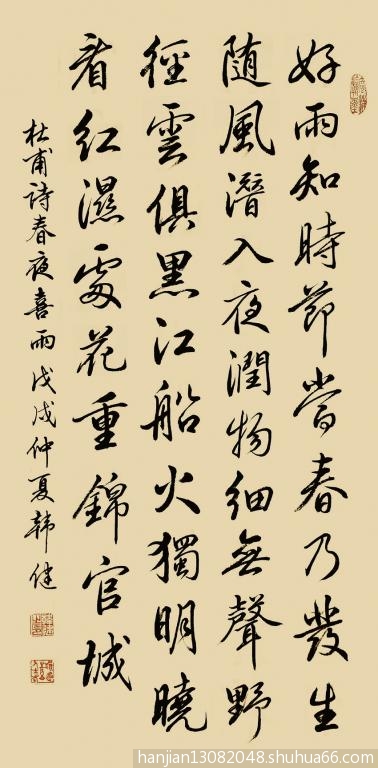 好雨知時節當春乃發生
随風潛入夜潤物细無聲野
徑雲俱黑江船火獨明曉
看红濕處花重錦官城
杜甫詩春夜喜雨戊戌仲夏韩健
hanjian13082048.shuhua66.com